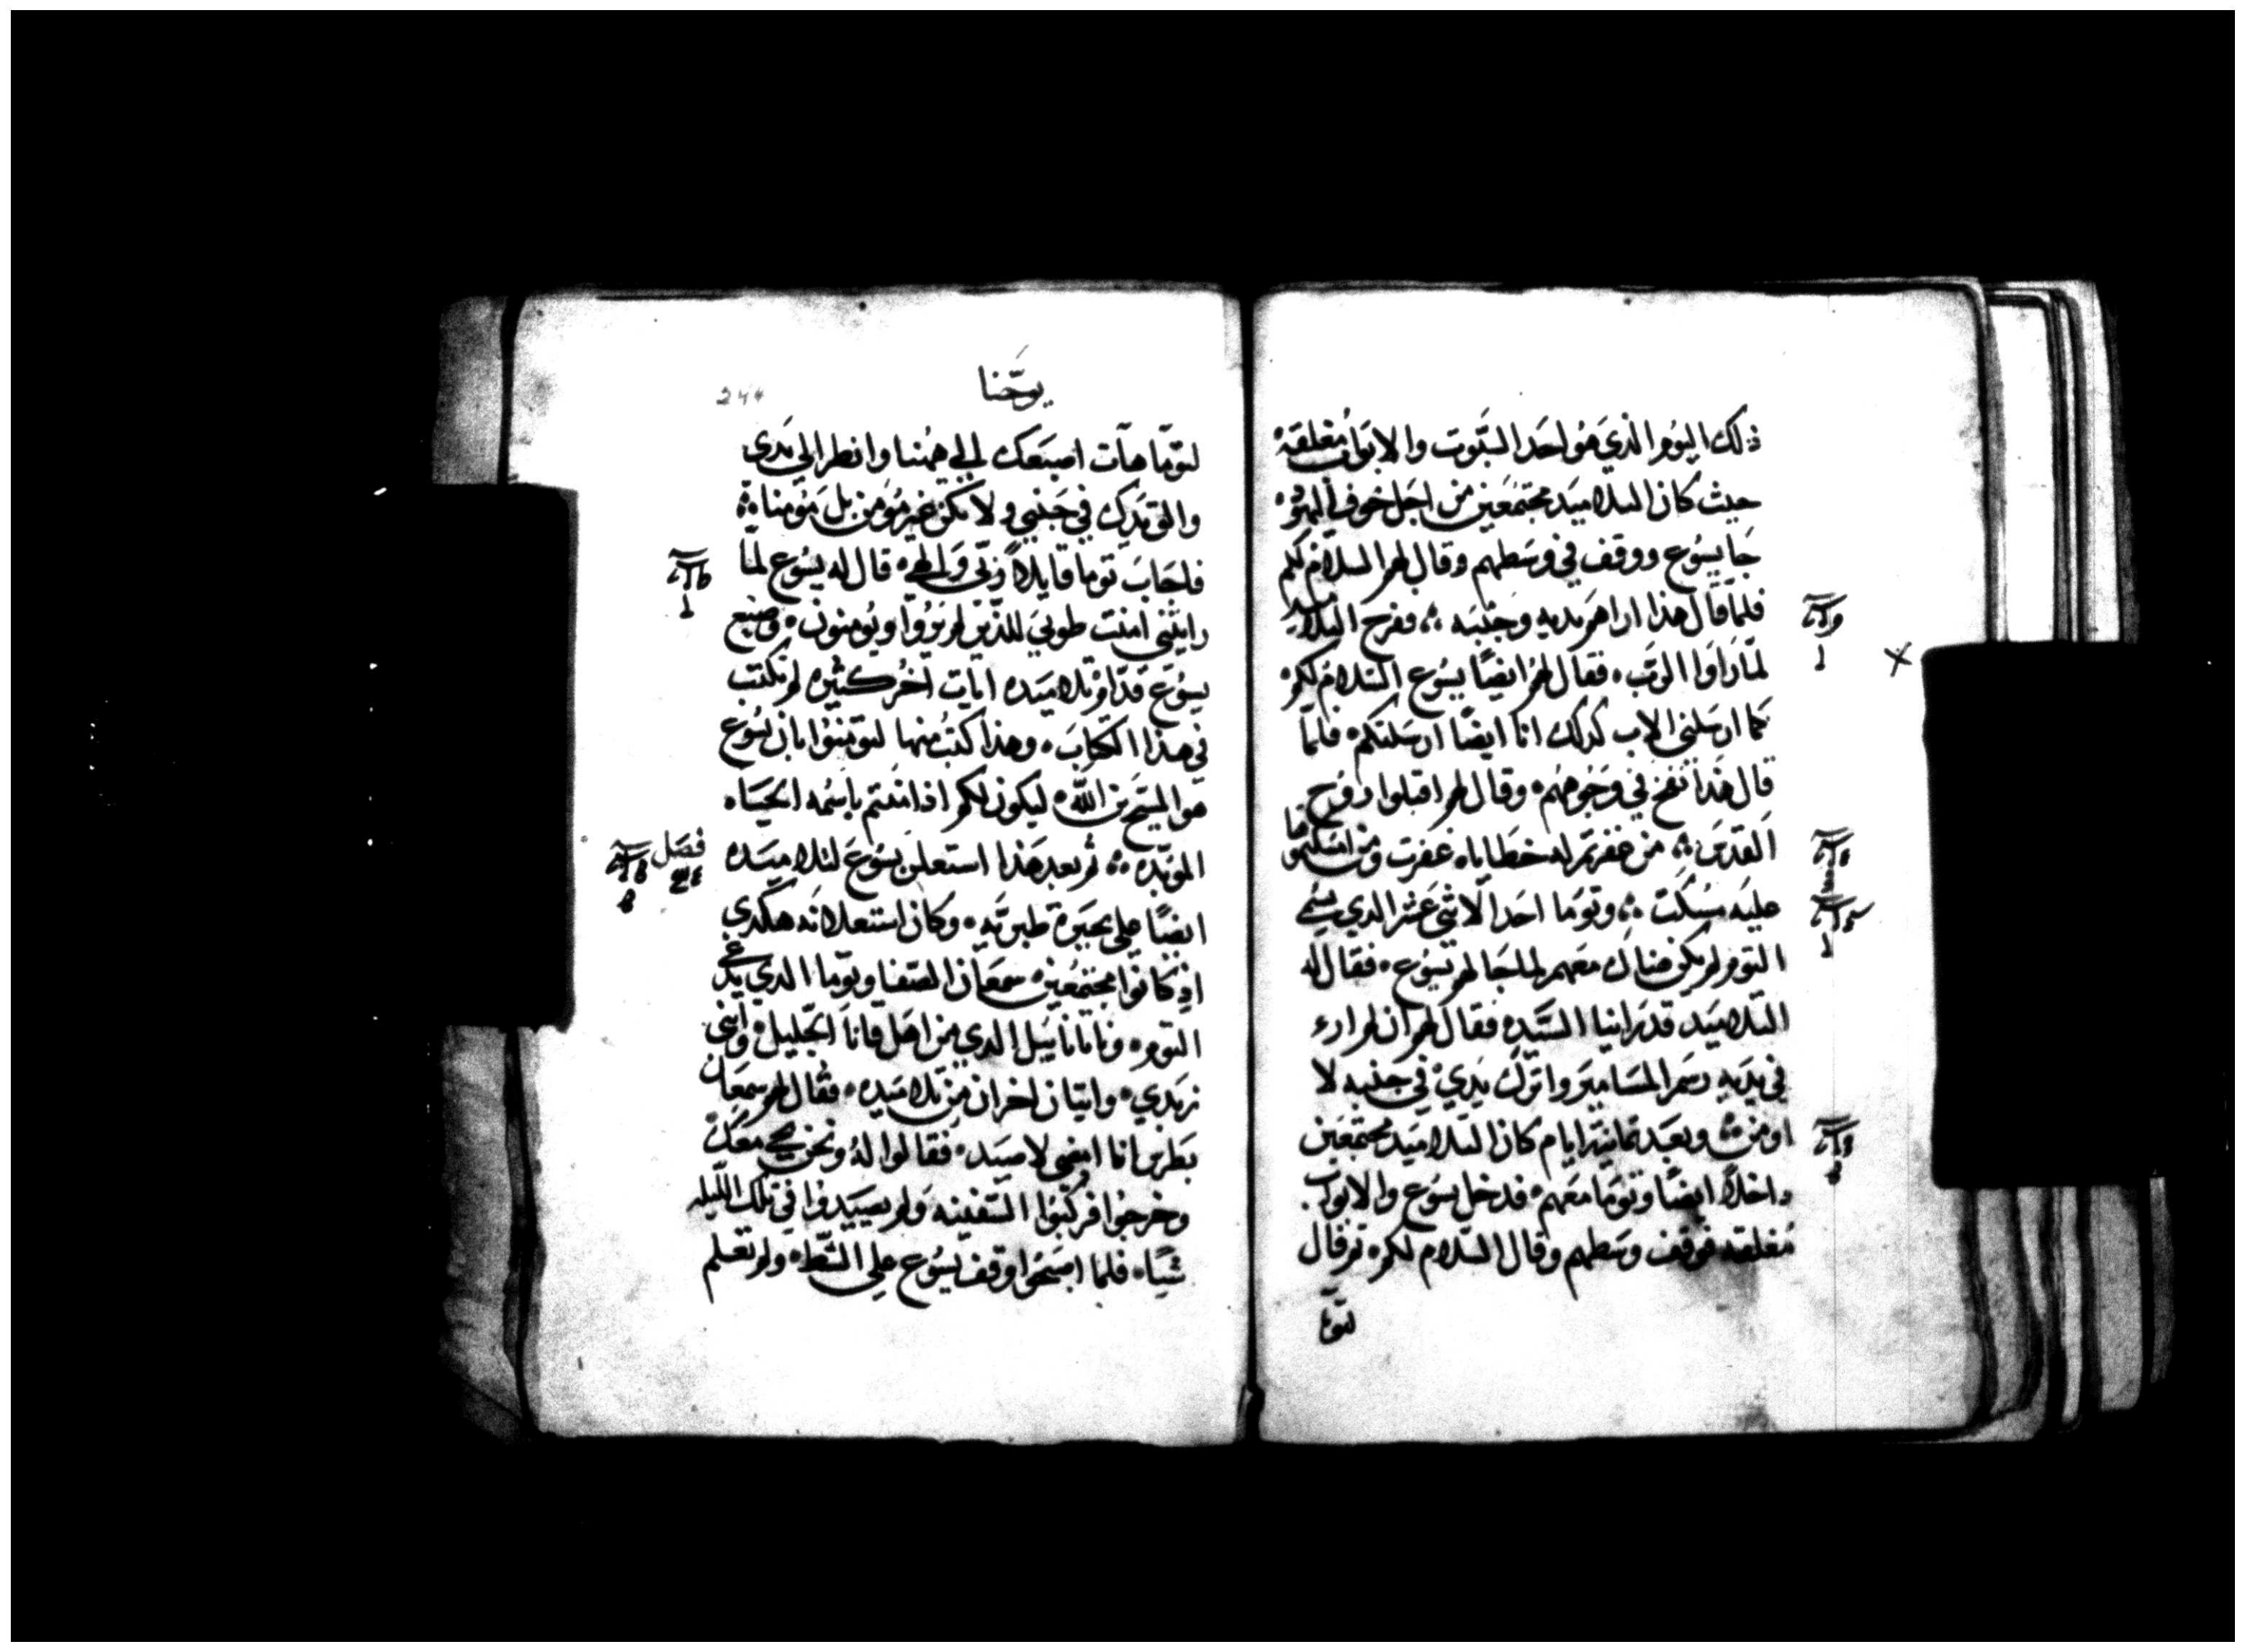 ذلك اليوم الذي هو احد السبوت والابواب مغلقه
حيث كان التلاميد مجتمعين من اجل خوف اليهود
جا يسوع ووقف في وسطهم وقال لهم السلام لكم
فلما قال هذا اراهم يديه وجنبه ففرح التلاميد
لما راوا الرب فقال لهم ايضًا يسوع السلام لكم
كما ارسلني الاب كدلك انا ايضًا ارسلتكم فلما
قال هذا نفخ في وجوههم وقال لهم اقبلوا روح
القدس من غفرتم له خطاياه غفرت ومن امسكتموها
عليه مسكت وتوما احد الاثني عشر الدي يسمي
التوم لم يكن هناك معهم لما جا لهم يسوع فقال له
التلاميد قد راينا السيد فقال لهم ان لم اري
في يديه رسم المسامير واترك يدي في جنبه لا
اومن وبعد تمانية ايام كان التلاميد مجتمعين
داخلاً ايضًا وتوما معهم فدخل يسوع والابواب
مغلقه فوقف وسطهم وقال السلام لكم تم قال
لتوما
يوحنا
244
لتوما هات اصبعك الي ههنا وانظر الي يدي
والق يدك في جنبي ولا تكن غير مومن بل مومنا
فاجاب توما قايلاً ربي والهي قال له يسوع لما
رايتني امنت طوبي للذين لم يروا ويومنون وصنع
يسوع قدام تلاميده ايات اخر كثيره لم تكتب
في هذا الكتاب وهذا كتب منها لتومنوا بان يسوع
هو المسيح بن الله ليكون لكم اذا امنتم باسمه الحياه
الموبده ثم بعد هذا استعلن يسوع لتلاميده
فصل
ايضًا علي بحيرة طبريه وكان استعلانه هكدي
اذ كانوا مجتمعين سمعان الصفا وتوما الدي يدعي
التوم وناتاناييل الدي من اهل قانا الجليل وابني
زبدي واتنان اخران من تلاميده فقال لهم سمعان
بطرس انا امضي لاصيد فقالوا له ونحن نجي معك
وخرجوا فركبوا السفينه ولم يصيدوا في تلك الليله
شيًا فلما اصبحوا وقف يسوع علي الشط ولم تعلم